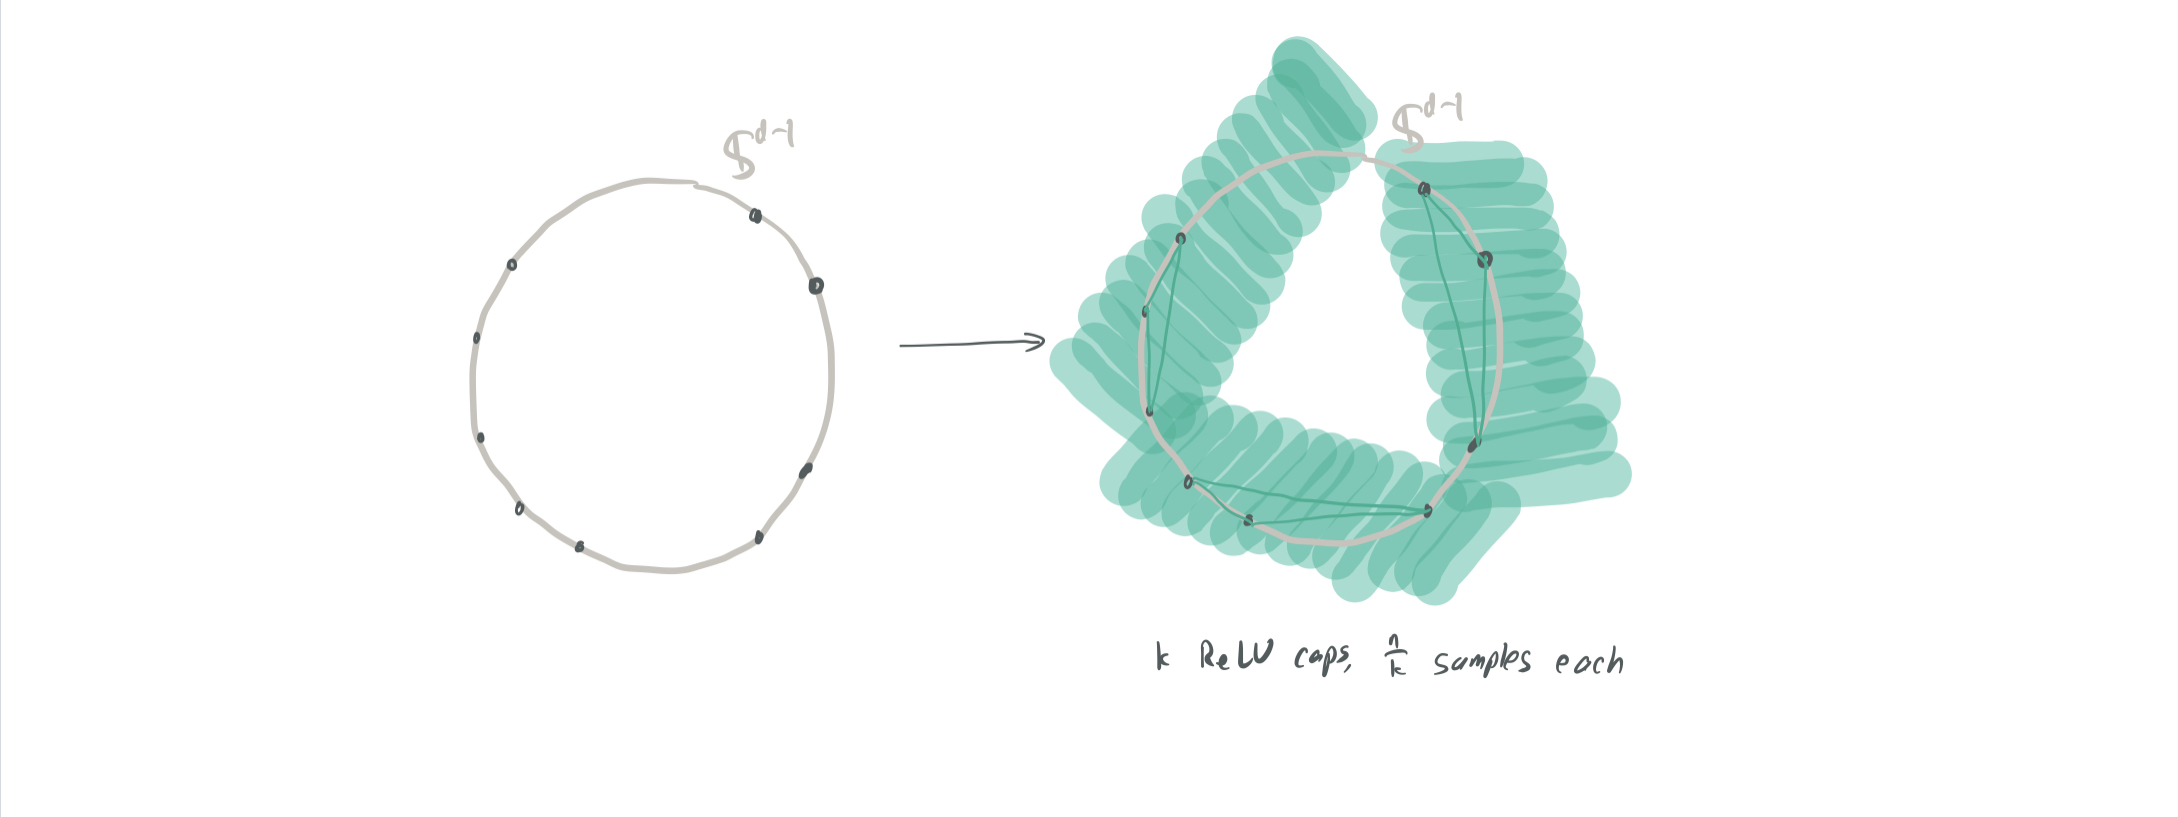 𝕊^{d-1}
𝕊^{d-1}
k ReLU caps, n/k samples each